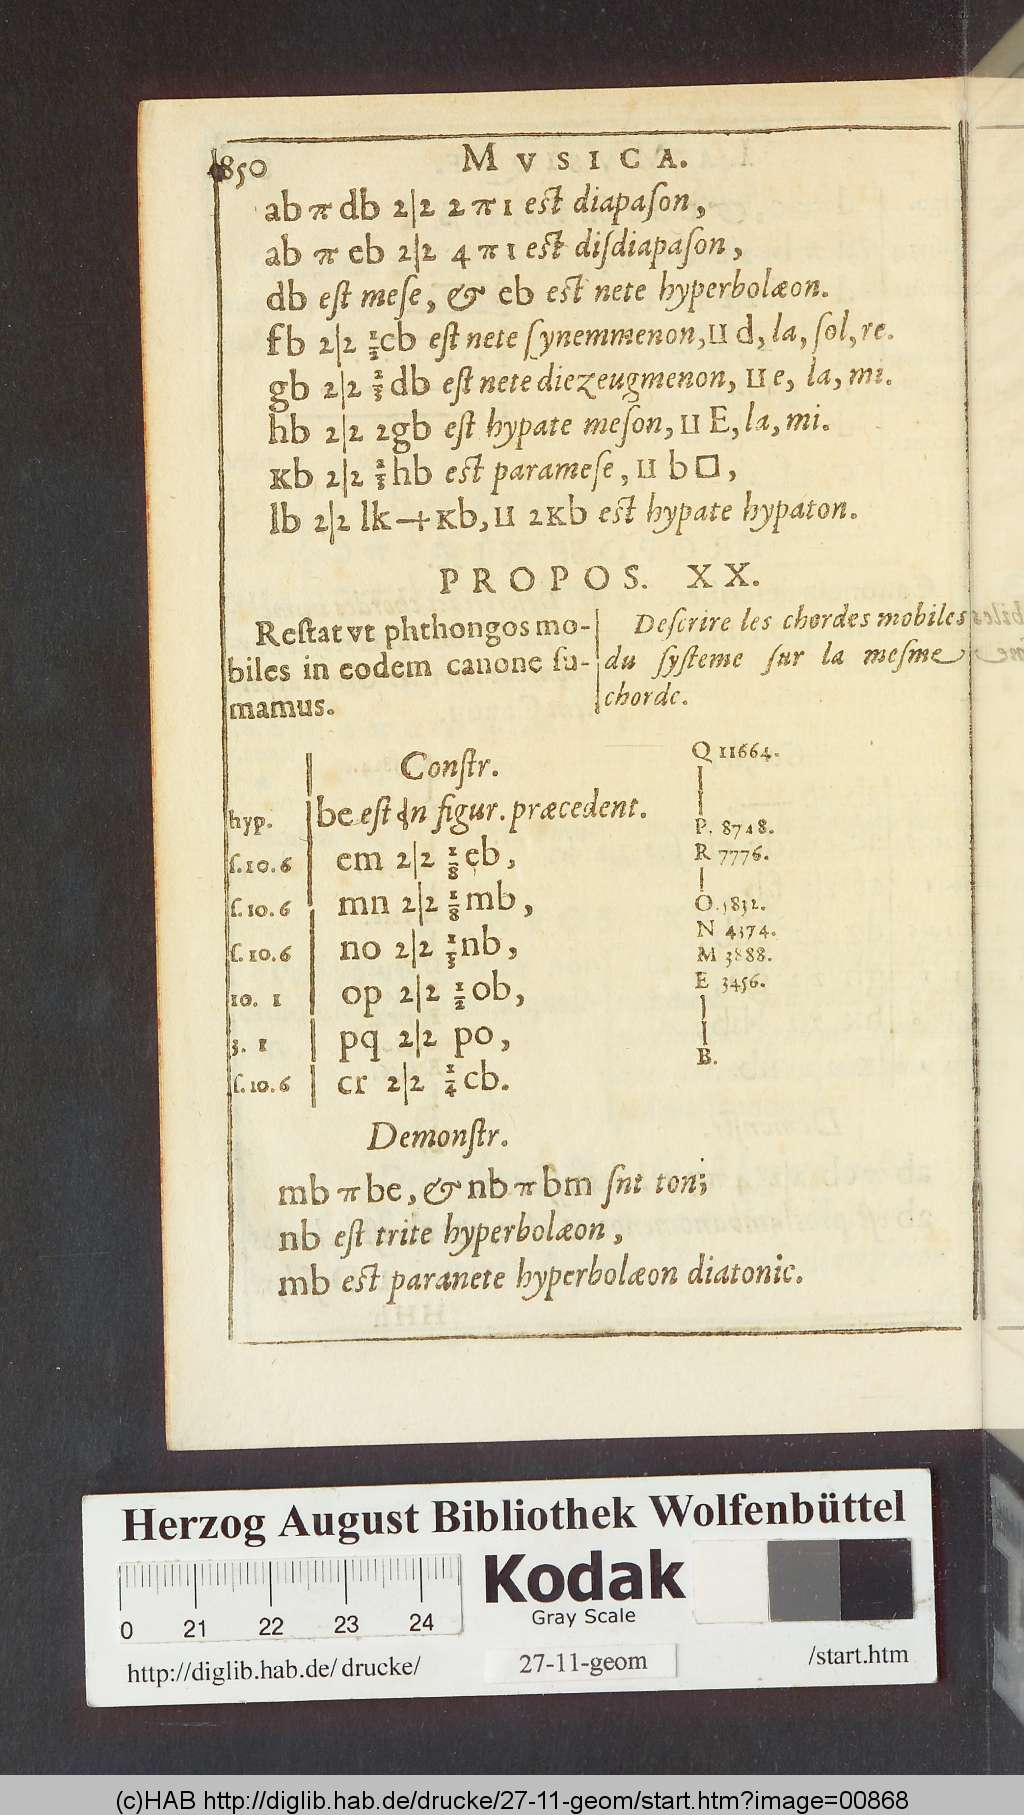 850 MVSICA.
ab π db 2|2 2 π 1 est diapason,
ab π eb 2|2 4 π 1 est disdiapason,
db est mese, & eb est nete hyperbolæon.
fb 2|2 1/2 cb est nete synemmenon, ⊔ d, la, sol, re.
gb 2|2 2/3 db est nete diezeugmenon, ⊔ e, la, mi.
hb 2|2 2gb est hypate meson, ⊔ E, la, mi.
kb 2|2 2/3 hb est paramese, ⊔ b□,
lb 2|2 lk + kb, ⊔ 2kb est hypate hypaton.
PROPOS. XX.
Restat vt phthongos mo-
biles in eodem canone su-
mamus.
Descrire les chordes mobiles
du systeme sur la mesme
chorde.
Constr.
hyp. be est in figur. præcedent.
s.10.6 em 2|2 1/8 eb,
s.10.6 mn 2|2 1/8 mb,
s.10.6 no 2|2 1/3 nb,
10. 1 op 2|2 1/2 ob,
3. 1 pq 2|2 po,
s.10.6 cr 2|2 1/4 cb.
Q 11664.
P. 8748.
R 7776.
O. 5832.
N 4374.
M 3888.
E 3456.
B.
Demonstr.
mb π be, & nb π bm snt toni;
nb est trite hyperbolæon,
mb est paranete hyperbolæon diatonic.
Herzog August Bibliothek Wolfenbüttel
0 21 22 23 24
Kodak
Gray Scale
http://diglib.hab.de/drucke/ 27-11-geom /start.htm
(c)HAB http://diglib.hab.de/drucke/27-11-geom/start.htm?image=00868